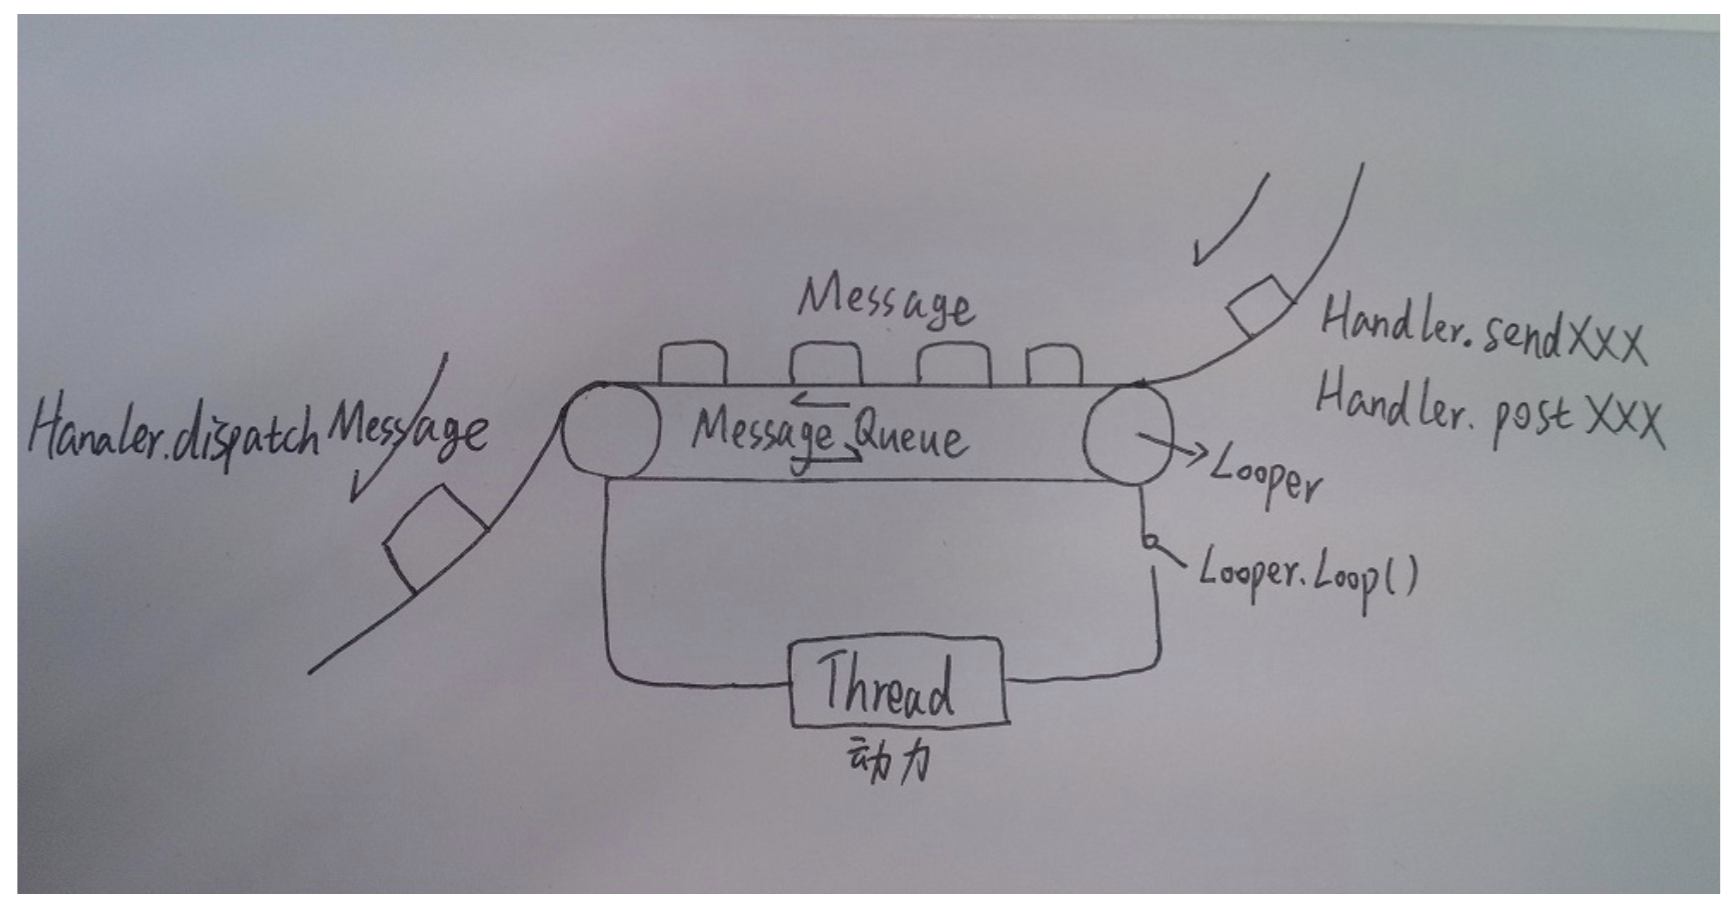 Message
Handler.sendXXX
Handler.postXXX
Hanaler.dispatchMessage
Message Queue
Looper
Looper.Loop()
Thread
动力